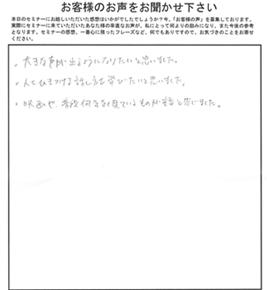 お客様のお声をお聞かせ下さい
本日のセミナーにお越しいただいた感想はいかがでしたでしょうか？今、「お客様の声」を募集しております。
実際にセミナーに来ていただいたあなた様の率直なお声が、私にとって何よりの励みになり、また今後の参考
となります。セミナーの感想、一番心に残ったフレーズなど、何でもありですので、お気づきのことをお寄せ
ください。
・大きな声が出るようになりたいと思いました。
・人をひきつける話し方を学びたいと思いました。
・映画や、普段何気なく見ているものが